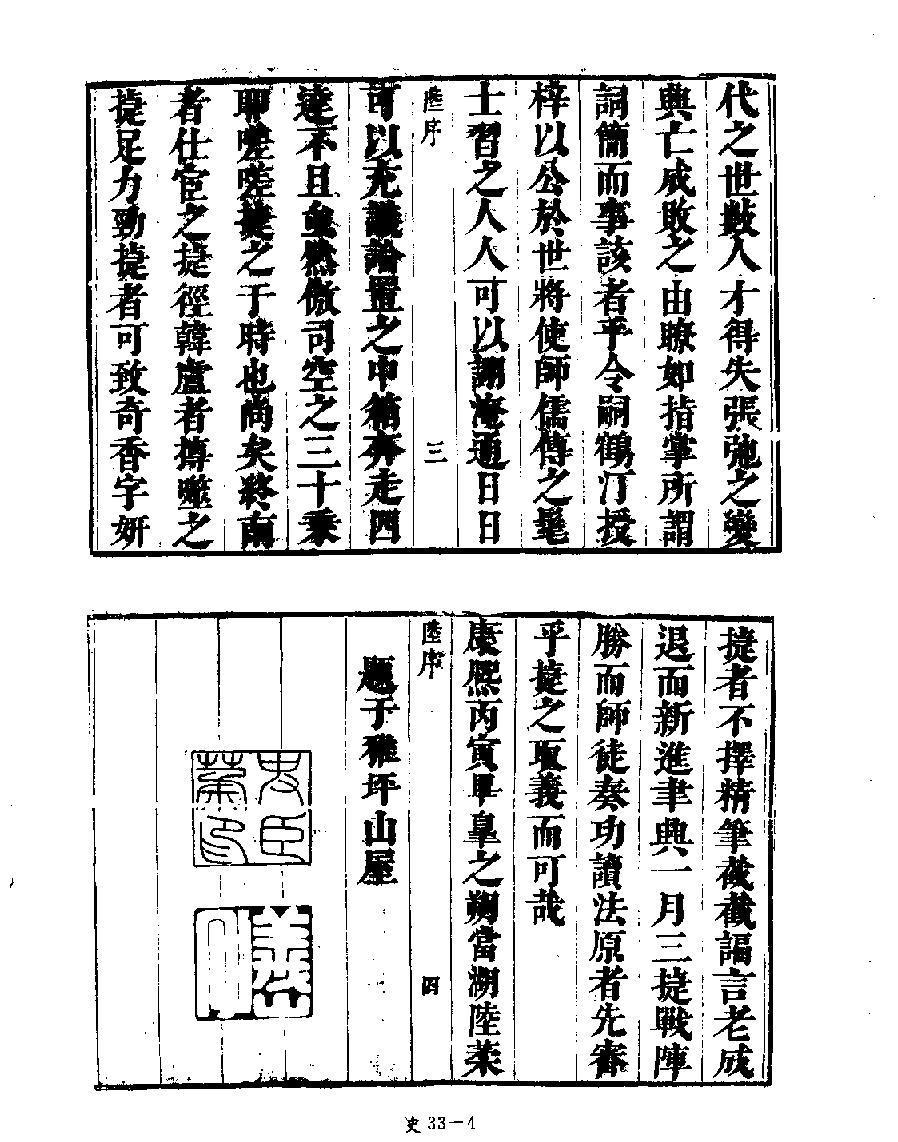 代之世數人才得失張弛之變
與亡成敗之由瞭如指掌所謂
詞簡而事該者乎令嗣鶴汀授
梓以公於世將使師儒傳之髦
士習之人人可以謝淹通日日
陸序
三
可以充議論置之巾箱奔走四
達不且彙然倣司空之三十乘
耶嗟嗟捷之于時也尚矣終南
者仕宦之捷徑韓盧者搏噬之
捷足力勁捷者可致奇香字妍
捷者不擇精筆截截諞言老成
退而新進聿興一月三捷戰陣
勝而師徒奏功讀法原者先審
乎捷之取義而可哉
康熙丙寅畢臯之朔當湖陸棻
陸序
四
題于雅坪山屋
史33-4